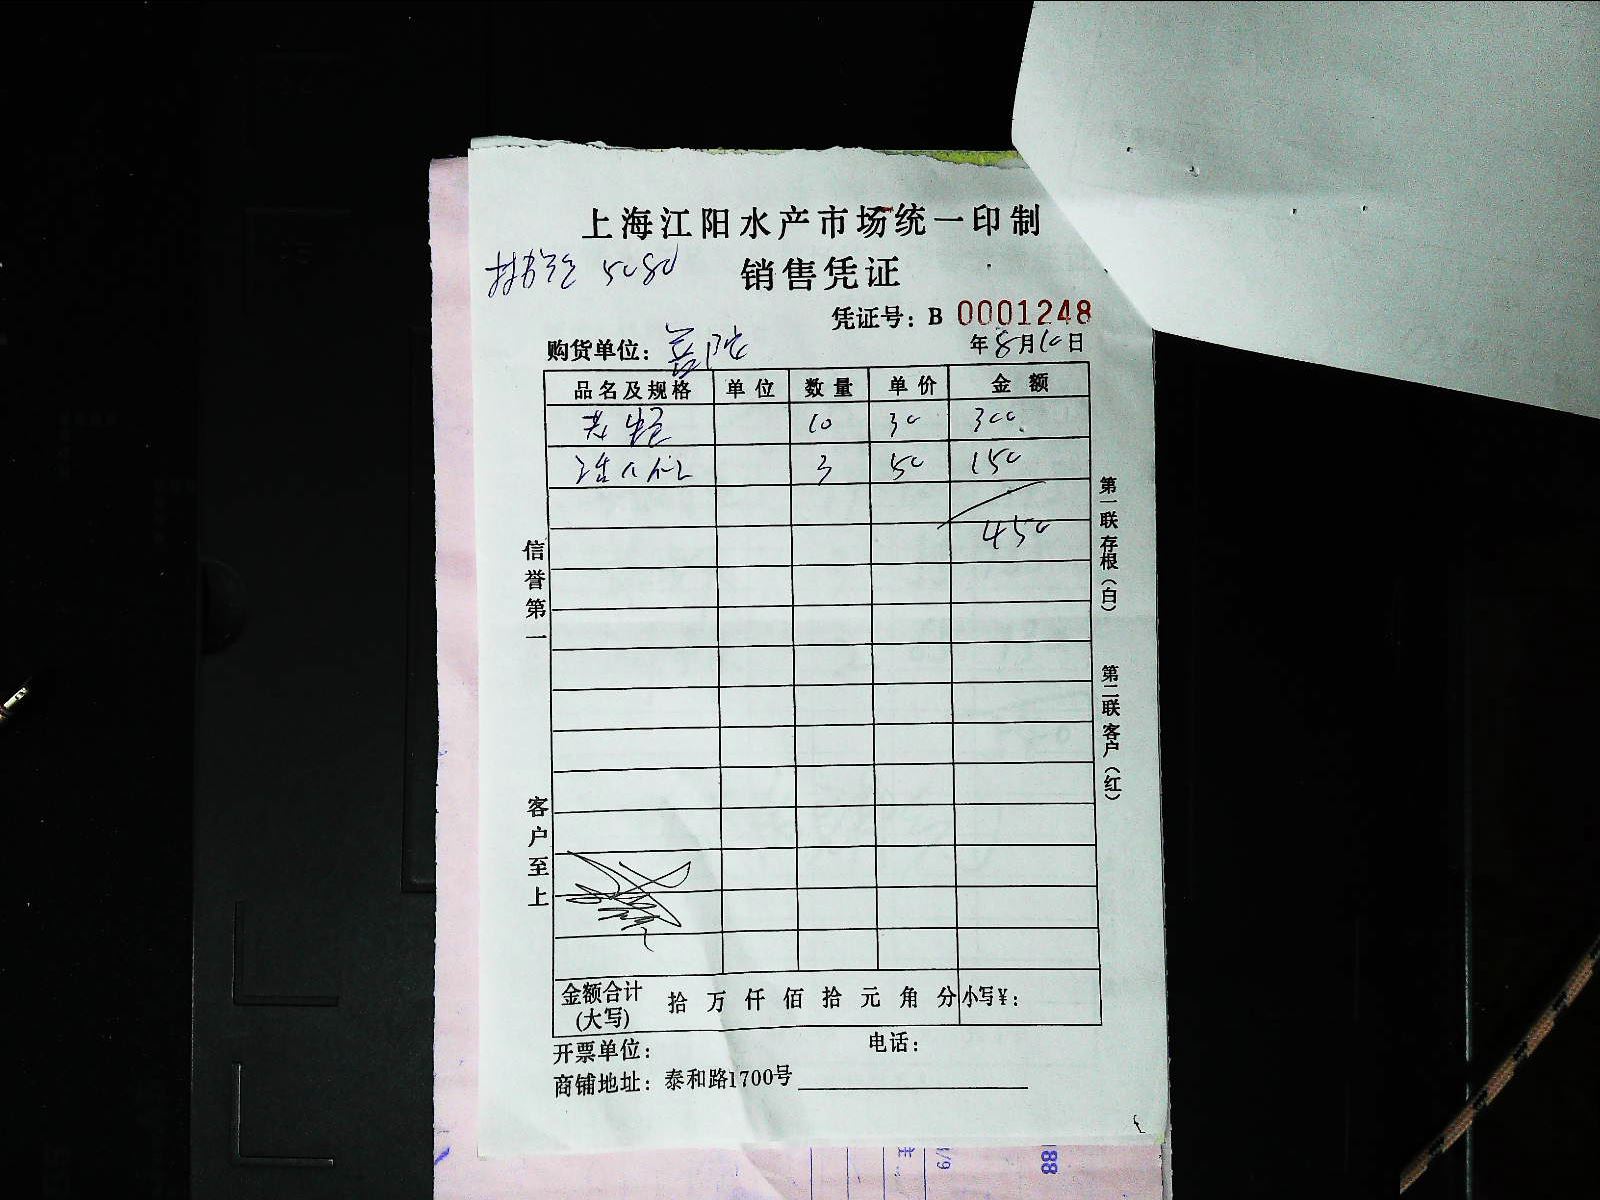 上海江阳水产市场统一印制
5080 销售凭证
凭证号：B 0001248
购货单位：
年8月10日
品名及规格 单位 数量 单价 金额
10 30 300
3 50 150
450
信誉第一
客户至上
第一联存根（白）
第二联客户（红）
金额合计(大写) 拾 万 仟 佰 拾 元 角 分 小写¥：
开票单位： 电话：
商铺地址：泰和路1700号